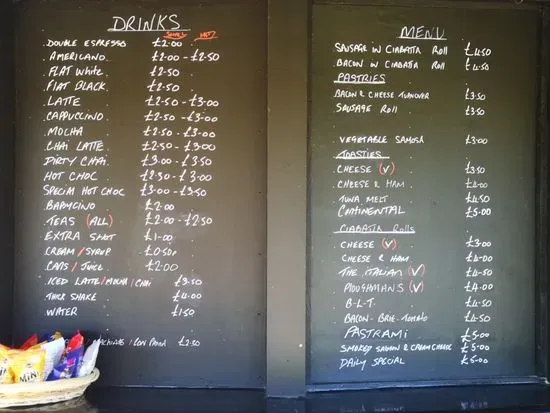 DRINKS
SMALL MED
DOUBLE ESPRESSO £2.00
AMERICANO £2.00 - £2.50
FLAT WHITE £2.50
FLAT BLACK £2.50
LATTE £2.50 - £3.00
CAPPUCCINO £2.50 - £3.00
MOCHA £2.50 - £3.00
CHAI LATTE £2.50 - £3.00
DIRTY CHAI £3.00 - £3.50
HOT CHOC £2.50 - £3.00
SPECIAL HOT CHOC £3.00 - £3.50
BABYCINO £2.00
TEAS (ALL) £2.00 - £2.50
EXTRA SHOT £1.00
CREAM/SYRUP £0.50p
CANS/JUICE £2.00
ICED LATTE/MOCHA/CHAI £3.50
THICK SHAKE £4.00
WATER £1.50
£2.50
MENU
SAUSAGE IN CIABATTA ROLL £4.50
BACON IN CIABATTA ROLL £4.50
PASTRIES
BACON & CHEESE TURNOVER £3.50
SAUSAGE ROLL £3.50
VEGETABLE SAMOSA £3.00
TOASTIES
CHEESE (V) £3.50
CHEESE & HAM £4.00
TUNA MELT £4.50
CONTINENTAL £5.00
CIABATTA ROLLS
CHEESE (V) £3.00
CHEESE & HAM £4.00
THE ITALIAN (V) £4.50
PLOUGHMANS (V) £4.00
B-L-T. £4.50
BACON-BRIE-TOMATO £4.50
PASTRAMI £5.00
SMOKED SALMON & CREAM CHEESE £5.00
DAILY SPECIAL £5.00